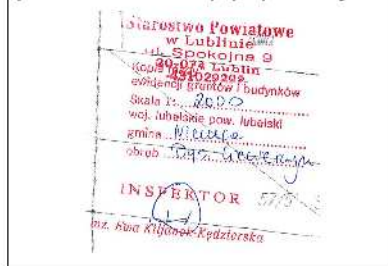 Starostwo Powiatowe
w Lublinie
ul. Spokojna 9
20-074 Lublin
431029209
Kopia mapy
ewidencji gruntów i budynków
Skala 1: 2000
woj. lubelskie pow. lubelski
gmina
obręb Dys
INSPEKTOR
57/9
mz. Ewa Kiljanek-Kędziorska